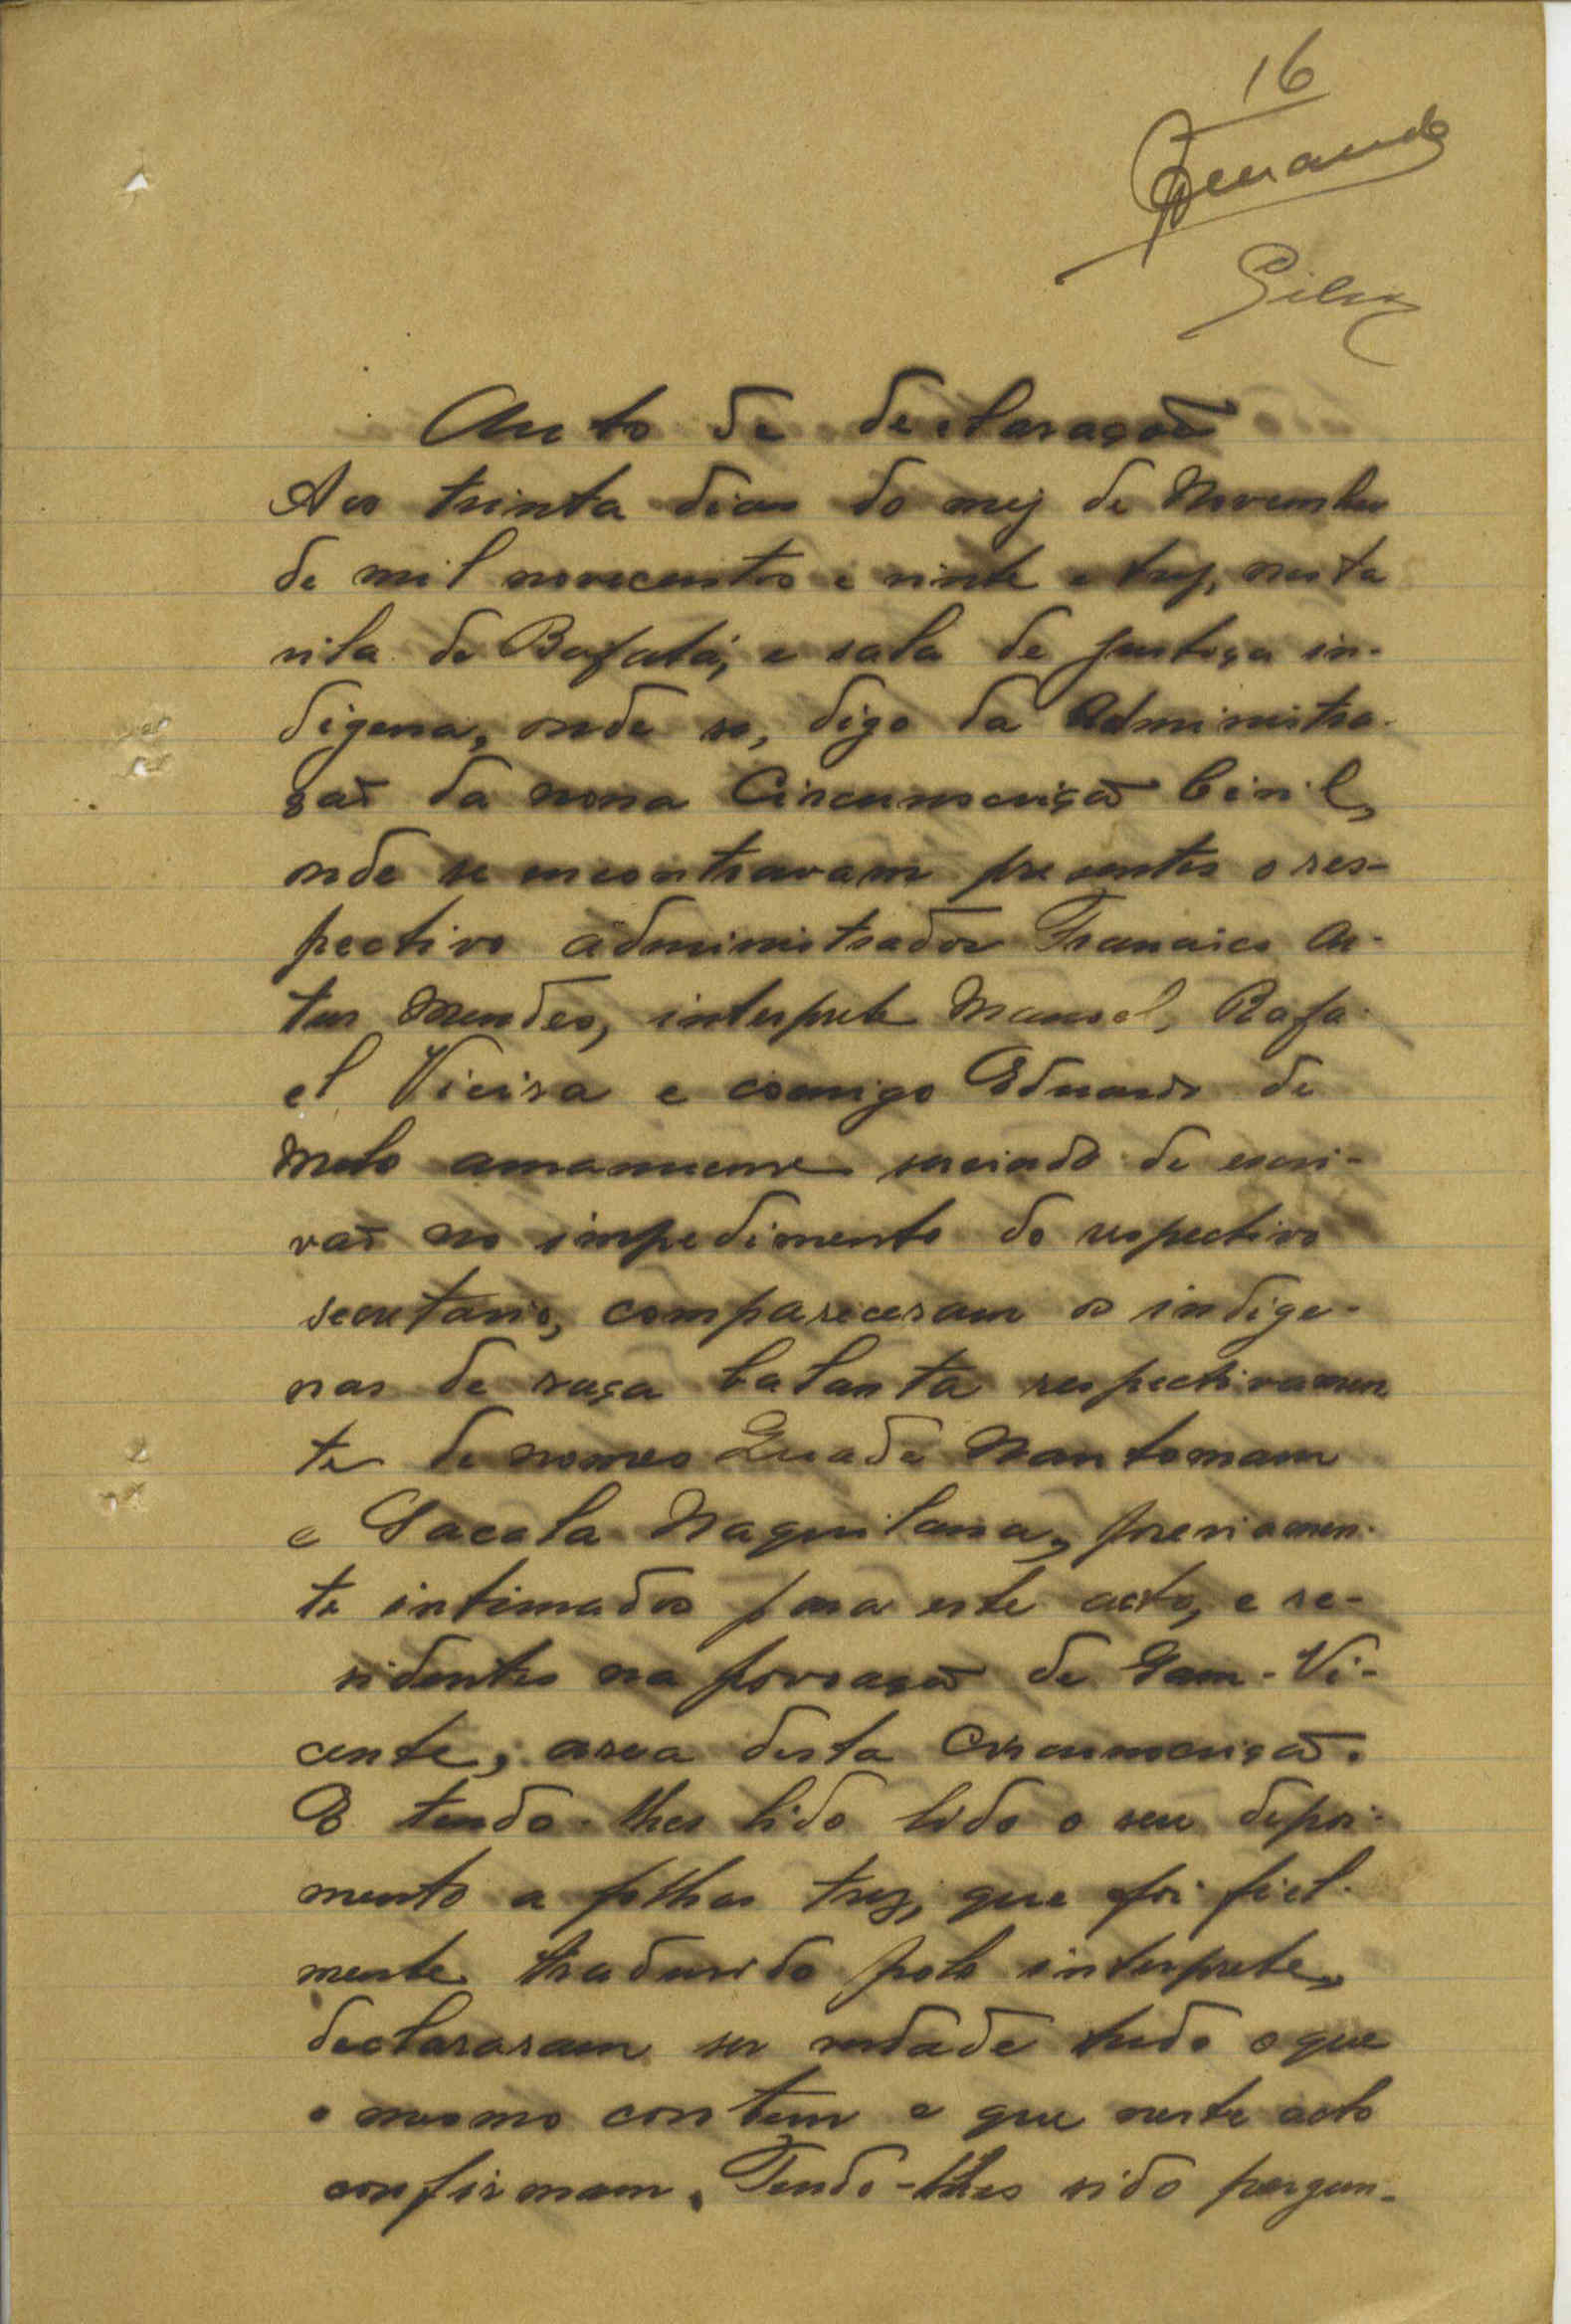 16
Silva
Auto de declaração
Aos trinta dias do mez de Novembro
de mil novecentos e vinte e trez, nesta
vila de Bafatá, e sala de justiça in-
digena, onde se, digo da Administra-
ção da nona Circumscrição Civil,
onde se encontravam presentes o res-
pectivo administrador Francisco Ar-
tur Mendes, interprete Manoel, Rafa-
el Vieira e comigo Eduardo de
Melo amanuense servindo de escri-
vão no impedimento do respectivo
secretario, compareceram os indige-
nas de raça balanta respectivamen
te de nomes Quade Nantomam
e Sacala Naquilana, previamen-
te intimados para este acto, e re-
sidentes na povoação de Gam-Vi-
cente, area desta Circumscrição.
E tendo-lhes sido lido o seu depoi-
mento a folhas trez, que foi fiel-
mente tradusido pelo interprete,
declararam ser verdade tudo o que
o mesmo contem e que neste acto
confirmam. Tendo-lhes sido pergun-